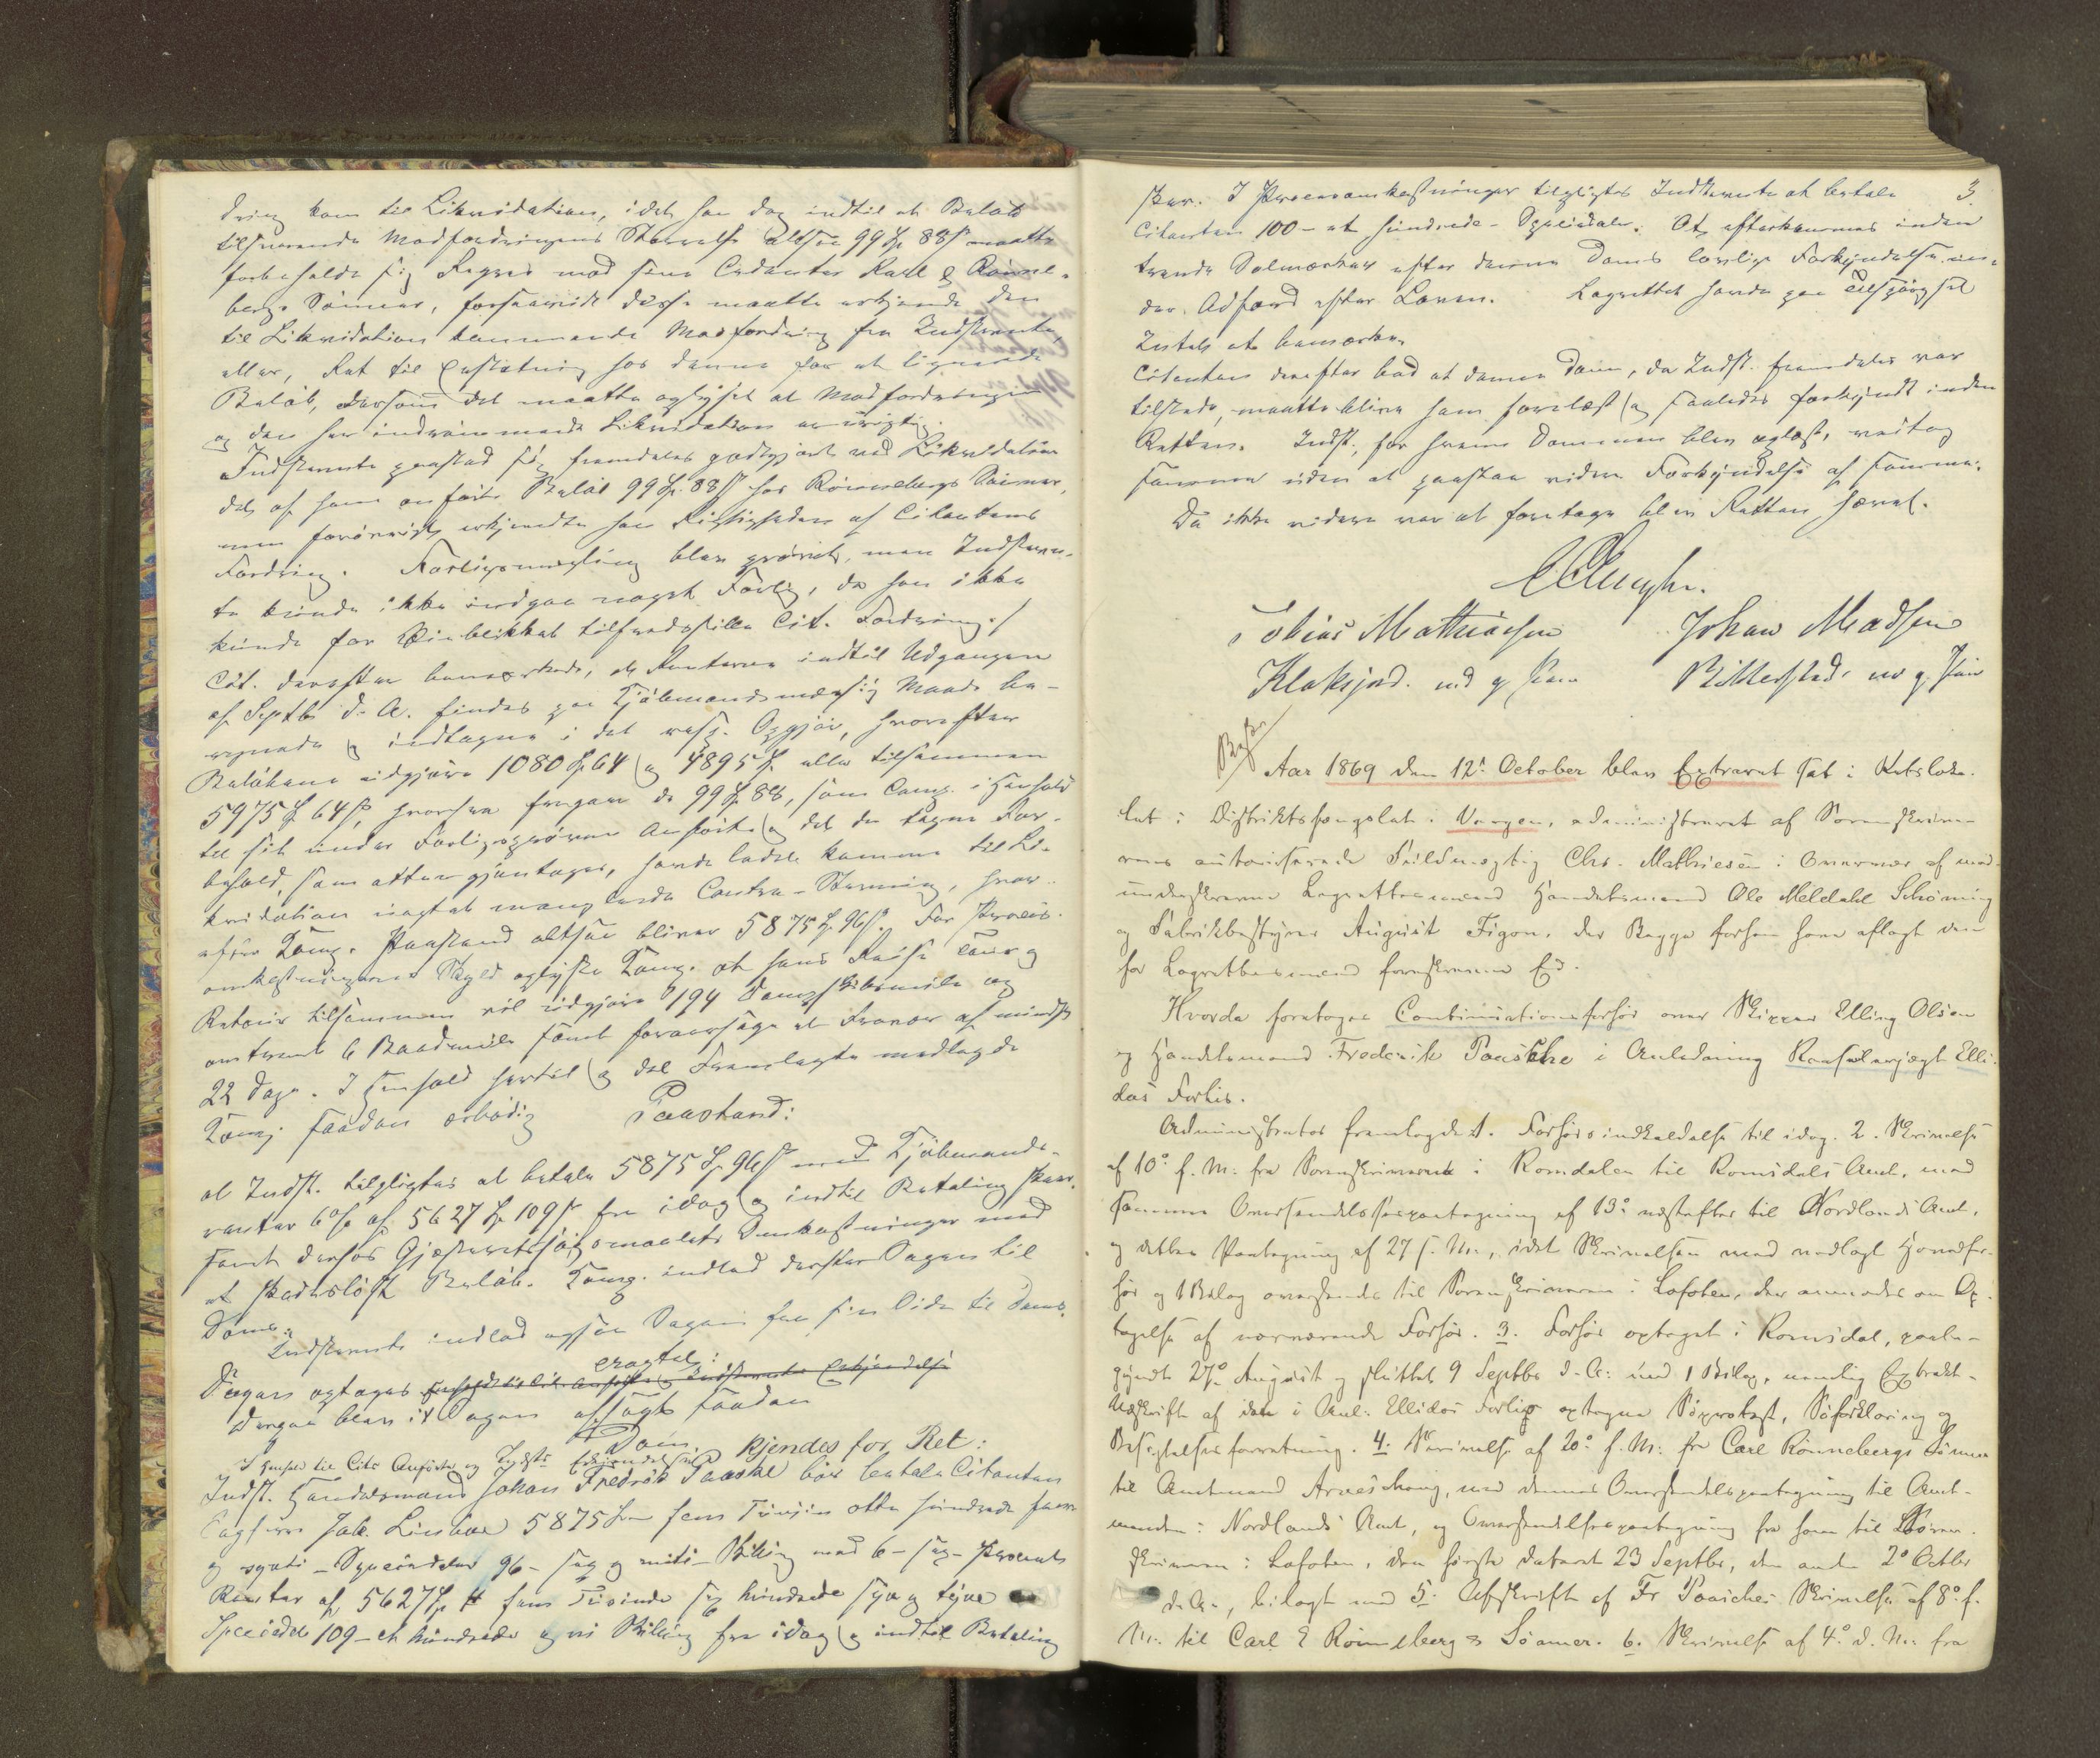 dring kom til Likvidation, idet han dog indtil et Beløb
tilsvarende Modfordringens Størrelse altsaa 99 Sp 88 ß maatte
forbeholde sig Regres mod sine Cedenter Karl E Rønne-
bergs Sønner, forsaavidt disse maatte erkjende den
til Likvidation kommende Modfordring fra Indstevnte,
eller, Ret til Erstatning hos denne for et lignende
Beløb, dersom det maatte oplyses at Modfordringen
og den her indrømmede Likvidation er urigtig.
Indstevnte paastod sig fremdeles godtgjort ved Likvidation
det af ham anførte Beløb 99 Sp. 88 ß hos Rønnebergs Sønner,
men forøvrigt erkjendte han Rigtigheden af Citantens
Fordring. Forligsmægling blev prøvet, men Indstevn-
te kunde ikke indgaa noget Forlig, da han ikke
kunde for Øieblikket tilfredsstille Cit. Fordring./
Cit. derefter bemærkede, at Renterne indtil Udgangen
af Septbr d. A. findes paa Kjøbmandsmæssig Maade be-
regnede og indtagne i det resp. Opgjør, hvorefter
Beløbene udgjøre 1080 Sp. 64 og 4895 Sp. eller tilsammen
5975 Sp 64 ß, hvorfra fragaar de 99 Sp. 88, som Comp. i Henhold
til sit under Forligsprøven Anførte og det da tagne For-
behold, som atter gjentages, havde ladet komme til Li-
kvidation uagtet manglende Contra-Stevning, hvor-
efter Comp. Paastand altsaa bliver 5875 Sp. 96 ß. For Proces-
omkostningernes Skyld oplyste Comp. at hans Reise Tour og
Retour tilsammen vil udgjøre 194 Dampskibsmile og
omtrent 6 Baadmile samt foraarsage et Fravær af mindst
22 Dage. I Henhold hertil og det Fremlagte nedlagde
Comp. saadan ærbødig Paastand:
at Indst. tilpligtes at betale 5875 Sp 96 ß med Kjøbmands-
renter 6 % af 5627 Sp 109 ß fra idag og indtil Betaling skeer,
samt derhos Gjæsteretssøgsmaalets Omkostninger med
et skadesløst Beløb. Comp. indlod derefter Sagen til
Doms.
Indstevnte indlod ogsaa Sagen fra sin Side til Doms.
eragtet:
Sagen optages
Derpaa blev i Sagen afsagt saadan
Dom.
I Henhold til Cits Anførte og Indsts Erkjendelse Kjendes for Ret:
Indst. Handelsmand Johan Fredrik Paaske bør betale Citanten
Sagfører Jak. Lindboe 5875 Sp – fem Tusind otte hundrede fem
og sytti – Speciedaler 96 – sex og nitti – Skilling med 6 – sex – Procents
Renter af 5627 Sp fem Tusinde sex hundrede syv og tyve
Speciedlr 109 – et hundrede og ni Skilling fra idag og indtil Betaling
3
skeer. I Procesomkostninger tilpligtes Indstevnte at betale
Citanten 100 – et hundrede – Speciedaler. At efterkommes inden
trende Solmærker efter denne Doms lovlige Forkyndelse un-
der Adfærd efter Loven. Lagrettet havde paa Tilspørgsel
Intet at bemærke.
Citanten derefter bad at denne Dom, da Indst. fremdeles var
tilstede, maatte blive ham forelæst og saaledes forkyndt inden
Retten. Indst., for hvem Dommen blev oplæst, vedtog
samme uden at paastaa videre Forkyndelse af samme.
Da ikke videre var at foretage blev Retten hævet.
Tobias Mathiasen Johan Madsen
Klaksjord. md p. Pen Rillerstad. m p. Pen
Aar 1869 den 12te October blev Extraret sat i Retsloka-
let i Distriktsfængslet i Vaagen, administreret af Sorenskrive-
rens autoriserede Fuldmægtig Chr. Mathiesen i Overvær af med-
underskrevne Lagrettesmænd Handelsmand Ole Meldahl Schøning
og Fabrikbestyrer August Figon, der Begge forhen have aflagt den
for Lagrettesmænd foreskrevne Ed.
Hvorda foretoges Continuationsforhør over Skipper Elling Olsen
og Handelsmand Frederik Paaske i Anledning Ranselverjagt Elli-
das Forlis.
Administrator fremlagde 1. Forhørsindkaldelse til idag. 2. Skrivelse
af 10de f. M. fra Sorenskriveren i Romsdalen til Romsdals Amt, med
sammes Oversendelsespaategning af 13de næstefter til Nordlands Amt,
og dettes Paategning af 27 f. M., idet Skrivelsen med vedlagt Hovedfor-
hør og 1 Bilag oversendes til Sorenskriveren i Lofoten, der anmodes om Op-
tagelse af nærværende Forhør. 3. Forhør optaget i Romsdal, paabe-
gyndt 27de August og sluttet 9 Septbr d. A. med 1 Bilag, nemlig Extrakt-
Udskrift af den i Anl. Ellidas Forlis optagne Søprotest, Søforklaring og
Besigtelsesforretning. 4. Skrivelse af 20de f. M. fra Carl Rønnebergs Sønner
til Amtmand Arveschoug, med dennes Oversendelsespaategning til Amt-
manden i Nordlands Amt, og Oversendelsespaategning fra ham til Soren-
skriveren i Lofoten, den første dateret 23 Septbr, den anden 2de Octbr
d. A., bilagt med 5. Afskrift af Fr Paasches Skrivelse af 8de f.
M. til Carl E Rønneberg & Sønner. 6. Skrivelse af 4de d. M. fra